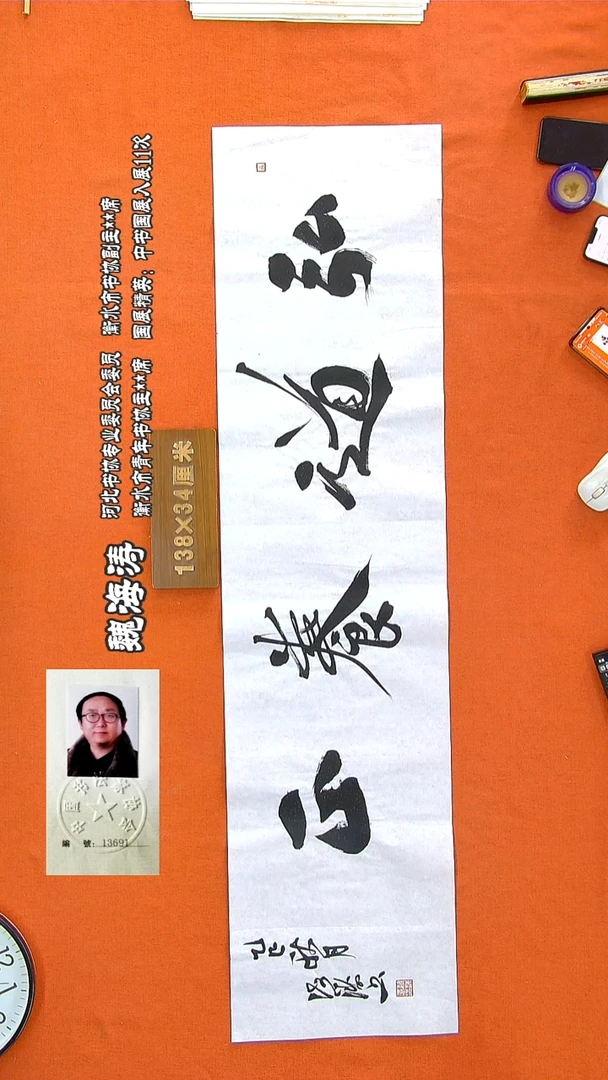 弘道養正
魏海涛
河北书协专业委员会委员 衡水市书协副主**席
衡水市青年书协主**席 国展精英：中书国展入展11次
138×34厘米
編 號：13691
12
1